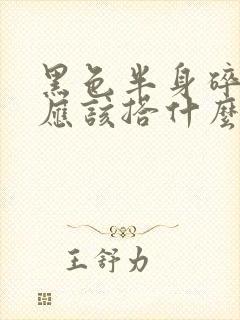 黑色半身碎
應該搭什麼
王舒力